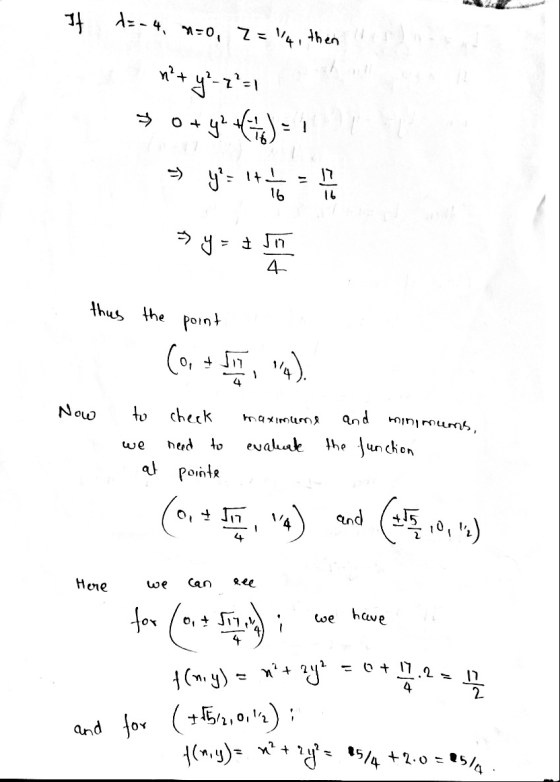 If λ = -4, x=0, z = 1/4, then
x² + y² - z² = 1
⇒ 0 + y² + (-1/16) = 1
⇒ y² = 1 + 1/16 = 17/16
⇒ y = ± √17/4
thus the point
(0, ± √17/4, 1/4).
Now to check maximums and minimums,
we need to evaluate the function
at points
(0, ± √17/4, 1/4) and (±√5/2, 0, 1/2)
Here we can see
for (0, ± √17/4, 1/4); we have
f(x,y) = x² + 2y² = 0 + 17/4 . 2 = 17/2
and for (±√5/2, 0, 1/2);
f(x,y) = x² + 2y² = 5/4 + 2.0 = 5/4.